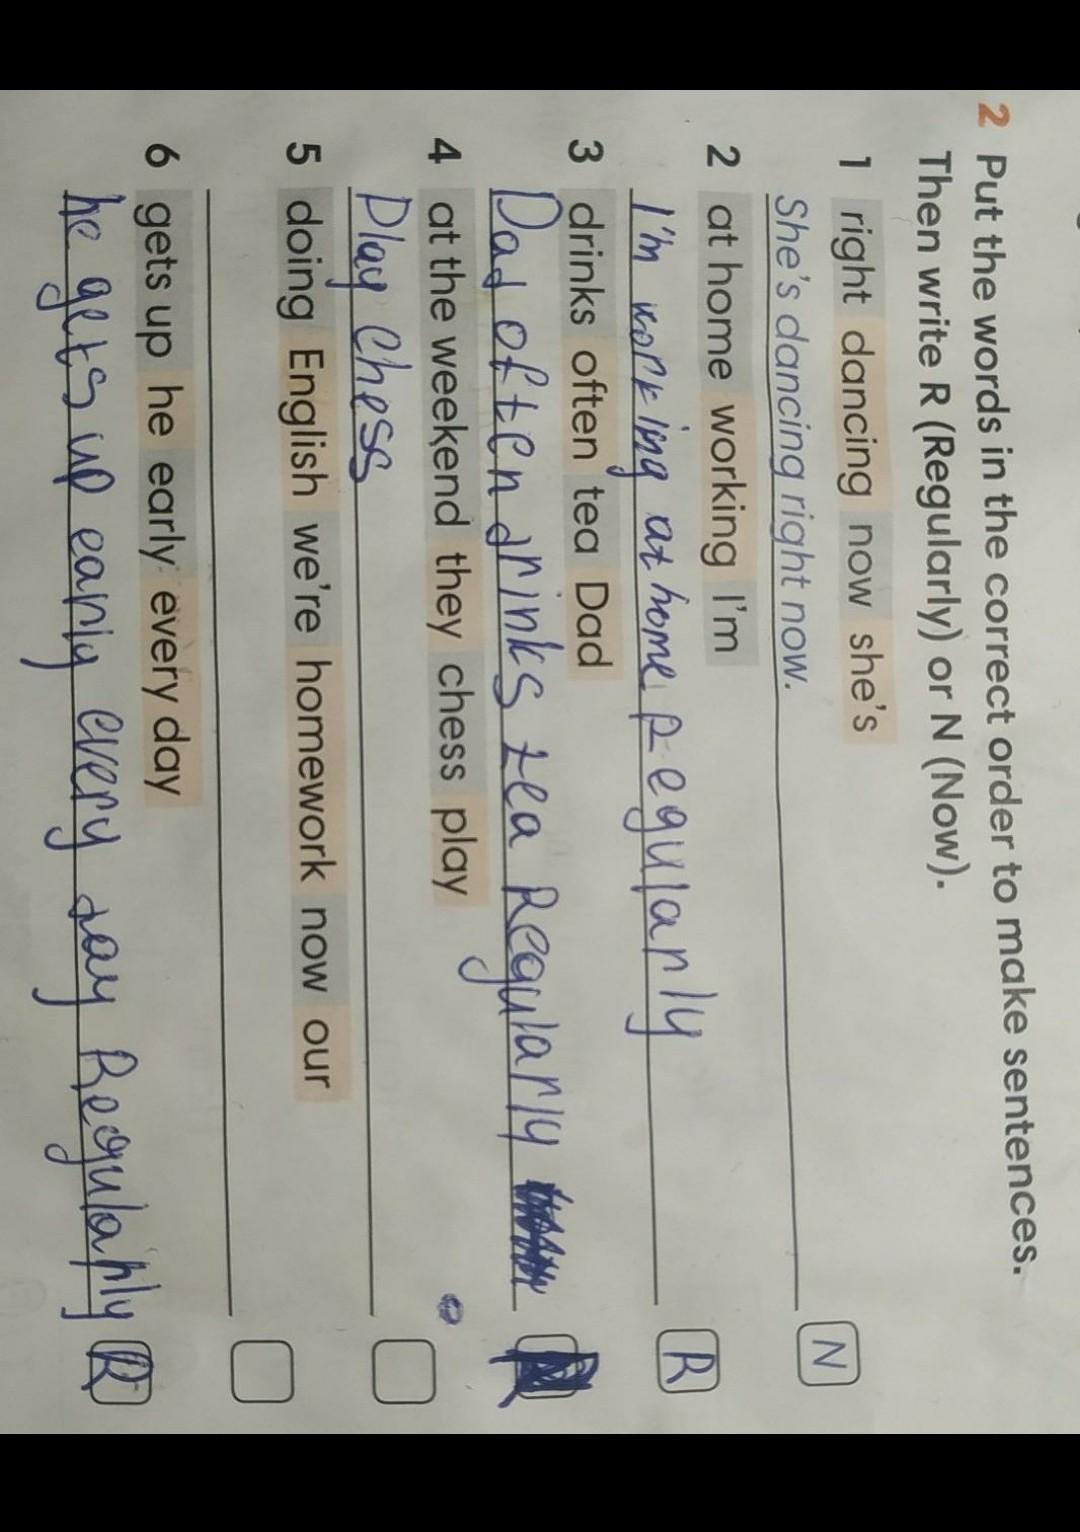 2 Put the words in the correct order to make sentences.
Then write R (Regularly) or N (Now).
1 right dancing now she's
She's dancing right now. N
2 at home working I'm
I'm working at home Regularly R
3 drinks often tea Dad
Dad often drinks tea Regularly
4 at the weekend they chess play
Play Chess
5 doing English we're homework now our
6 gets up he early every day
he gets up early every day Regularly R